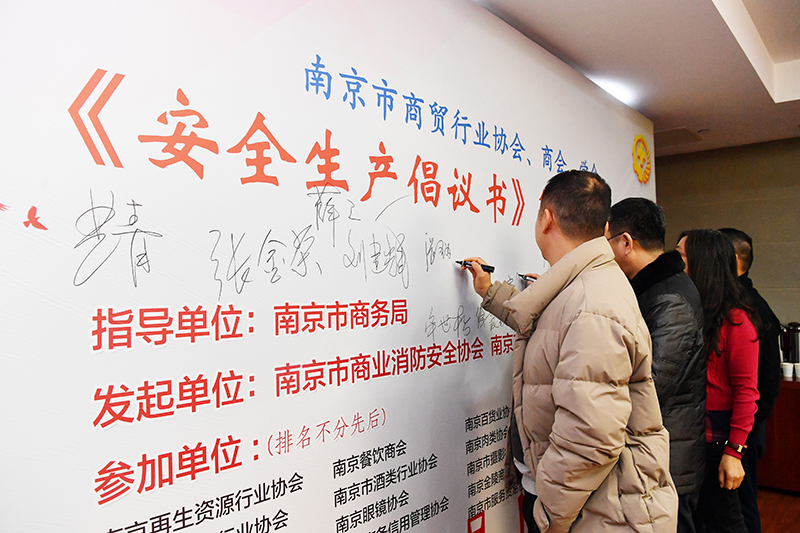 南京市商贸行业协会、商会、学会
《安全生产倡议书》
张金荣
刘建
指导单位：南京市商务局
发起单位：南京市商业消防安全协会 南京
参加单位：(排名不分先后)
南京再生资源行业协会
南京餐饮商会
南京市酒类行业协会
南京眼镜协会
务信用管理协会
行业协会
南京百货业协
南京肉类协会
南京市摄影
南京金陵商
南京市服务贸